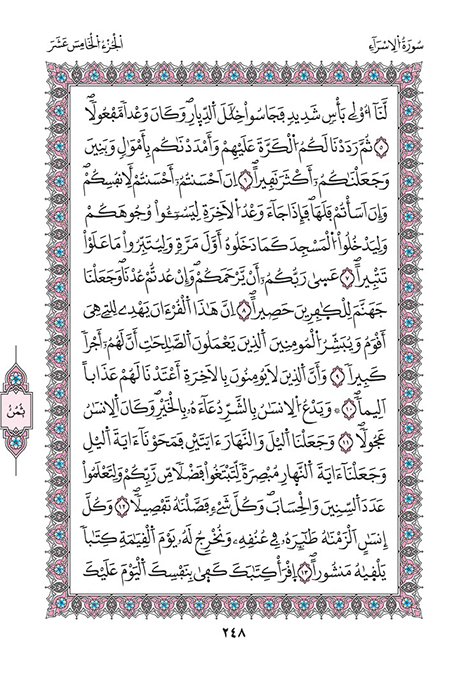 سُورَةُ الْإِسْرَاءِ
الْجُزْءُ الْخَامِسَ عَشَرَ
لَّنَا أُوْلِے بَأْسٍ شَدِيدٍ فَجَاسُواْ خِلَٰلَ اَ۬لدِّيَارِۖ وَكَانَ وَعْداٗ مَّفْعُولاٗۖ
٥ ثُمَّ رَدَدْنَا لَكُمُ اُ۬لْكَرَّةَ عَلَيْهِمْ وَأَمْدَدْنَٰكُم بِأَمْوَٰلٖ وَبَنِينَ
وَجَعَلْنَٰكُمُۥٓ أَكْثَرَ نَفِيراًۖ ٦ اِنَ اَحْسَنتُمُۥٓ أَحْسَنتُمْ لِأَنفُسِكُمْۖ
وَإِنَ اَسَأْتُمْ فَلَهَاۖ فَإِذَا جَآءَ وَعْدُ اُ۬لَاخِرَةِ لِيَسُـُٔواْ وُجُوهَكُمْ
وَلِيَدْخُلُواْ اُ۬لْمَسْجِدَ كَمَا دَخَلُوهُ أَوَّلَ مَرَّةٖ وَلِيُتَبِّرُواْ مَا عَلَوْاْ
تَتْبِيراًۖ ٧ عَسَىٰ رَبُّكُمُۥٓ أَنْ يَّرْحَمَكُمْۖ وَإِنْ عُدتُّمْ عُدْنَاۖ وَجَعَلْنَا
جَهَنَّمَ لِلْكَٰفِرِينَ حَصِيراًۖ ٨ اِنَّ هَٰذَا اَ۬لْقُرْءَانَ يَهْدِے لِلتِے هِىَ
أَقْوَمُ وَيُبَشِّرُ اُ۬لْمُومِنِينَ اَ۬لذِينَ يَعْمَلُونَ اَ۬لصَّٰلِحَٰتِ أَنَّ لَهُمُۥٓ أَجْراٗ
كَبِيراٗ ٩ وَأَنَّ اَ۬لذِينَ لَا يُومِنُونَ بِالَاخِرَةِ أَعْتَدْنَا لَهُمْ عَذَاباً
اَلِيماٗۖ ١٠ وَيَدْعُ اُ۬لِانسَٰنُ بِالشَّرِّ دُعَآءَهُۥ بِالْخَيْرِۖ وَكَانَ اَ۬لِانسَٰنُ
عَجُولاٗۖ ١١ وَجَعَلْنَا اَ۬ليْلَ وَالنَّهَارَ ءَايَتَيْنِۖ فَمَحَوْنَآ ءَايَةَ اَ۬ليْلِ
وَجَعَلْنَآ ءَايَةَ اَ۬لنَّهَارِ مُبْصِرَةٗ لِّتَبْتَغُواْ فَضْلاٗ مِّن رَّبِّكُمْ وَلِتَعْلَمُواْ
عَدَدَ اَ۬لسِّنِينَ وَالْحِسَابَۖ وَكُلَّ شَےْءٖ فَصَّلْنَٰهُ تَفْصِيلاٗۖ ١٢ وَكُلَّ
إِنسَٰنٍ اَلْزَمْنَٰهُ طَٰٓئِرَهُۥ فِے عُنُقِهِۦۖ وَنُخْرِجُ لَهُۥ يَوْمَ اَ۬لْقِيَٰمَةِ كِتَٰباٗ
يَلْقَيٰهُ مَنشُوراًۖ ١٣ اِقْرَأْ كِتَٰبَكَ كَفَىٰ بِنَفْسِكَ اَ۬لْيَوْمَ عَلَيْكَ
ثُمُنْ
٢٤٨